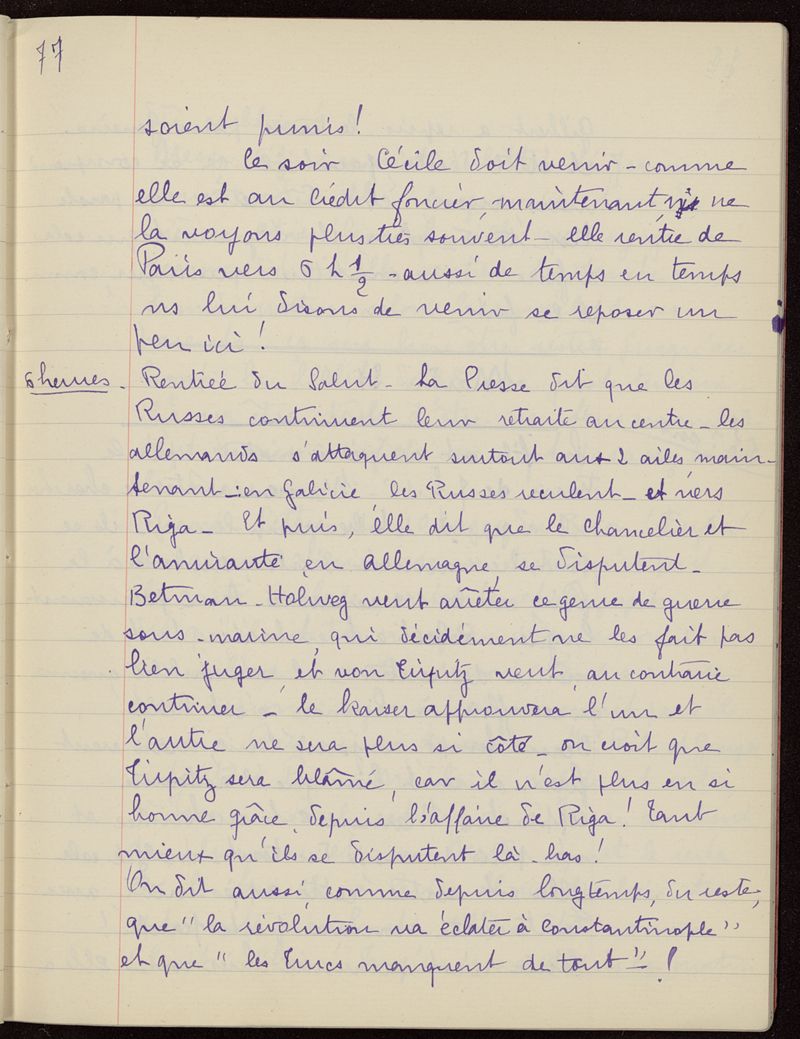 77
soient punis !
le soir Cécile doit venir - comme
elle est au Crédit foncier, maintenant, ns ne
la voyons plus très souvent - elle rentre de
Paris vers 6 h 1/2 - aussi de temps en temps
ns lui disons de venir se reposer un
peu ici !
6 heures. Rentrée du Salut - La Presse dit que les
Russes continuent leur retraite au centre - les
allemands s'attaquent surtout aux 2 ailes, main-
tenant - : en Galicie les Russes reculent - et vers
Riga - Et puis, elle dit que le chancelier et
l'amirauté, en allemagne, se disputent -
Betman - Holweg veut arrêter ce genre de guerre
sous-marine, qui décidément ne les fait pas
bien juger, et von Tirpitz veut, au contraire
continuer - le kaiser approuvera l'un et
l'autre ne sera plus si côté - on croit que
Tirpitz sera blâmé, car il n'est plus en si
bonne grâce, depuis l'affaire de Riga ! Tant
mieux qu'ils se disputent là-bas !
On dit aussi, comme depuis longtemps, du reste,
que " la révolution va éclater à Constantinople "
et que " les Turcs manquent de tout " - !